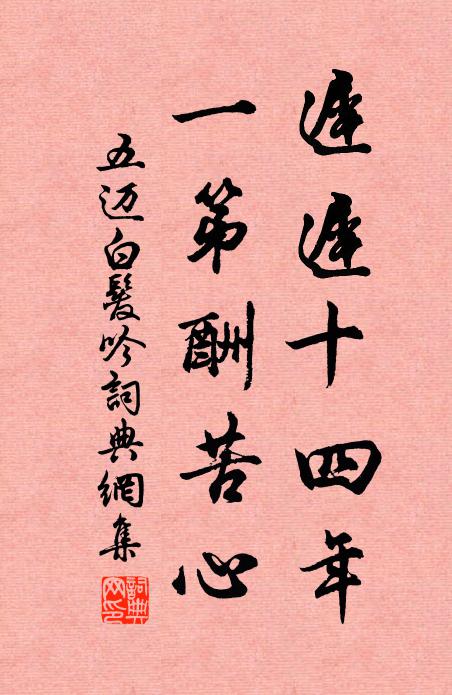 遲遲十四年
一第酬苦心
五迈白髮吟詞典網集
詞典網印